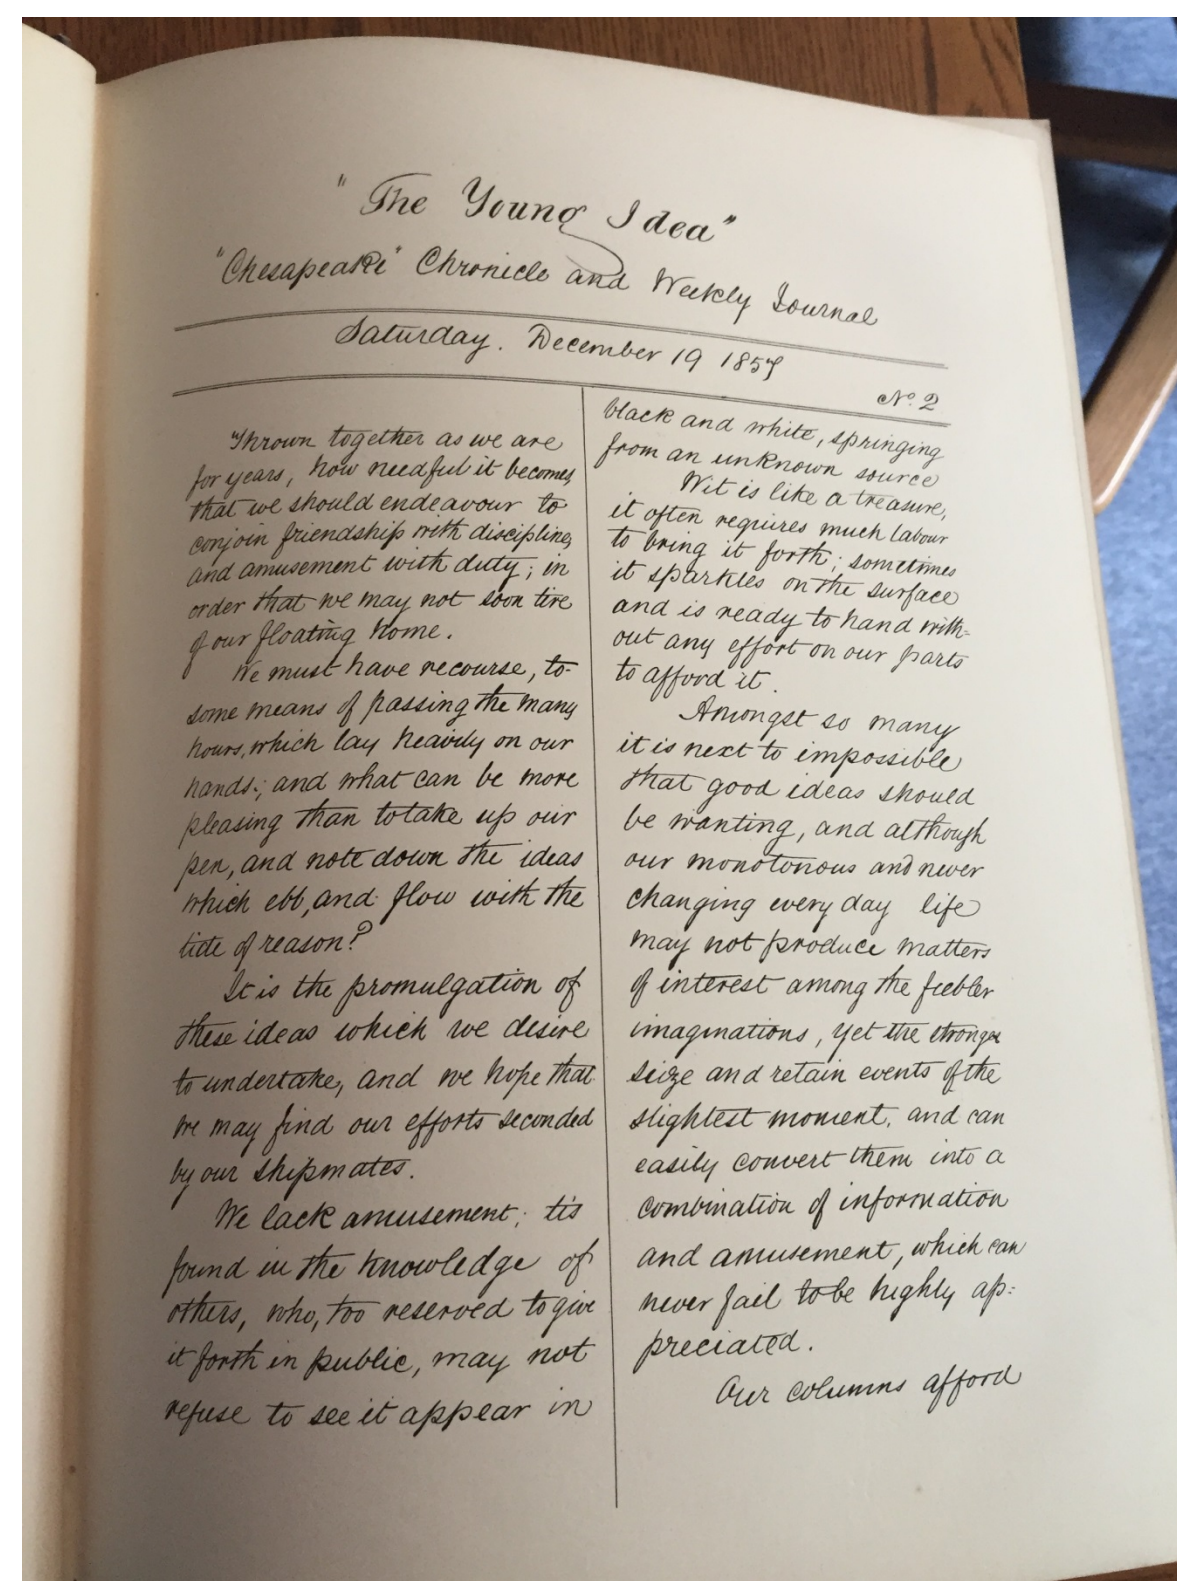 "The Young Idea"
"Chesapeake" Chronicle and Weekly Journal
Saturday. December 19 1857
No. 2
Thrown together as we are
for years, how needful it becomes,
that we should endeavour to
conjoin friendship with discipline,
and amusement with duty; in
order that we may not soon tire
of our floating home.
We must have recourse, to
some means of passing the many
hours, which lay heavily on our
hands; and what can be more
pleasing than to take up our
pen, and note down the ideas
which ebb, and flow with the
tide of reason?
It is the promulgation of
these ideas which we desire
to undertake, and we hope that
we may find our efforts seconded
by our shipmates.
We lack amusement; tis
found in the knowledge of
others, who, too reserved to give
it forth in public, may not
refuse to see it appear in
black and white, springing
from an unknown source
Wit is like a treasure,
it often requires much labour
to bring it forth; sometimes
it sparkles on the surface
and is ready to hand with=
out any effort on our parts
to afford it.
Amongst so many
it is next to impossible
that good ideas should
be wanting, and although
our monotonous and never
changing every day life
may not produce matters
of interest among the feebler
imaginations, yet the stronger
seize and retain events of the
slightest moment, and can
easily convert them into a
combination of information
and amusement, which can
never fail to be highly ap=
preciated.
Our columns afford